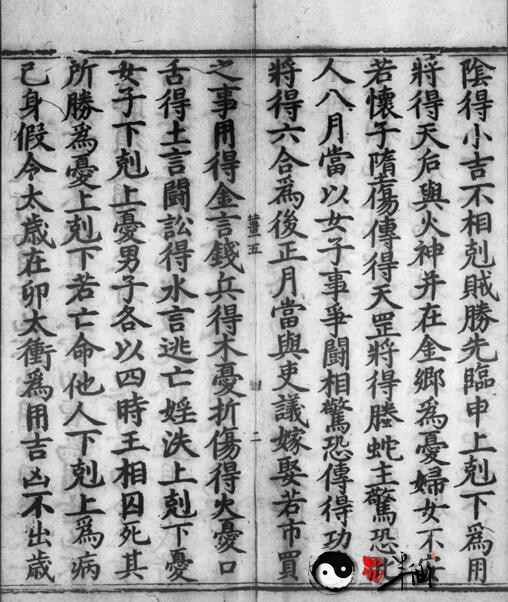 陰得小吉不相剋賊勝先臨申上剋下爲用
將得天后與火神并在金鄉爲憂婦女不
若懷子墮傷傳得天罡將得螣蛇主驚恐
人八月當以女子事爭鬪相驚恐傳得功
將得六合爲後正月當與吏議嫁娶若市買
之事用得金言錢兵得木憂折傷得火憂口
舌得土言鬪訟得水言逃亡婬泆上剋下憂
女子下剋上憂男子各以四時王相囚死其
所勝爲憂上剋下若亡命他人下剋上爲病
己身假令太歲在卯太衝爲用吉凶不出歲
二